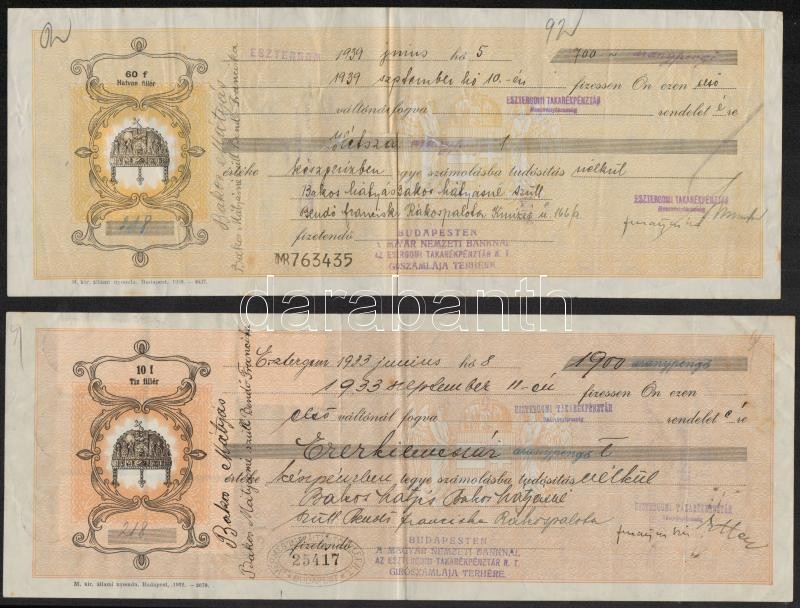 92
60 f
Hatvan fillér
ESZTERGOM 1939 junius hó 5 700 aranypengő
1939 szeptember hó 10.-én fizessen Ön ezen első
váltónál fogva ESZTERGOMI TAKARÉKPÉNZTÁR rendelet é re
Részvénytársaság
Hétszáz
értéke készpénzben tegye számolásba tudósítás nélkül
Bakos Mátyás Bakos Mátyásné szül
ESZTERGOMI TAKARÉKPÉNZTÁR
Részvénytársaság
Bendó Franciska Rákospalota
BUDAPESTEN
fizetendő A MAGYAR NEMZETI BANKNÁL
AZ ESZTERGOMI TAKARÉKPÉNZTÁR R. T.
MR763435 GIRÓSZÁMLÁJA TERHÉRE
218
Bakos Mátyás
Bakos Mátyásné szült Bendó Franciska
M. kir. állami nyomda. Budapest, 1938. — 8637.
darabanth
10 f
Tiz fillér
Esztergom 1933 junius hó 8 1900 aranypengő
1933 szeptember 11-én fizessen Ön ezen
első váltónál fogva ESZTERGOMI TAKARÉKPÉNZTÁR rendelet é re
Részvénytársaság
Ezerkilencszáz aranypengőt
értéke készpénzben tegye számolásba tudósítás nélkül
Bakos Mátyás Bakos Mátyásné
ESZTERGOMI TAKARÉKPÉNZTÁR
Részvénytársaság
szült Bendó Franciska Rákospalota
BUDAPESTEN
fizetendő A MAGYAR NEMZETI BANKNÁL
25417 AZ ESZTERGOMI TAKARÉKPÉNZTÁR R. T.
GIRÓSZÁMLÁJA TERHÉRE
218
Bakos Mátyás
Bakos Mátyásné szült Bendó Franciska
M. kir. állami nyomda. Budapest, 1932. — 3070.